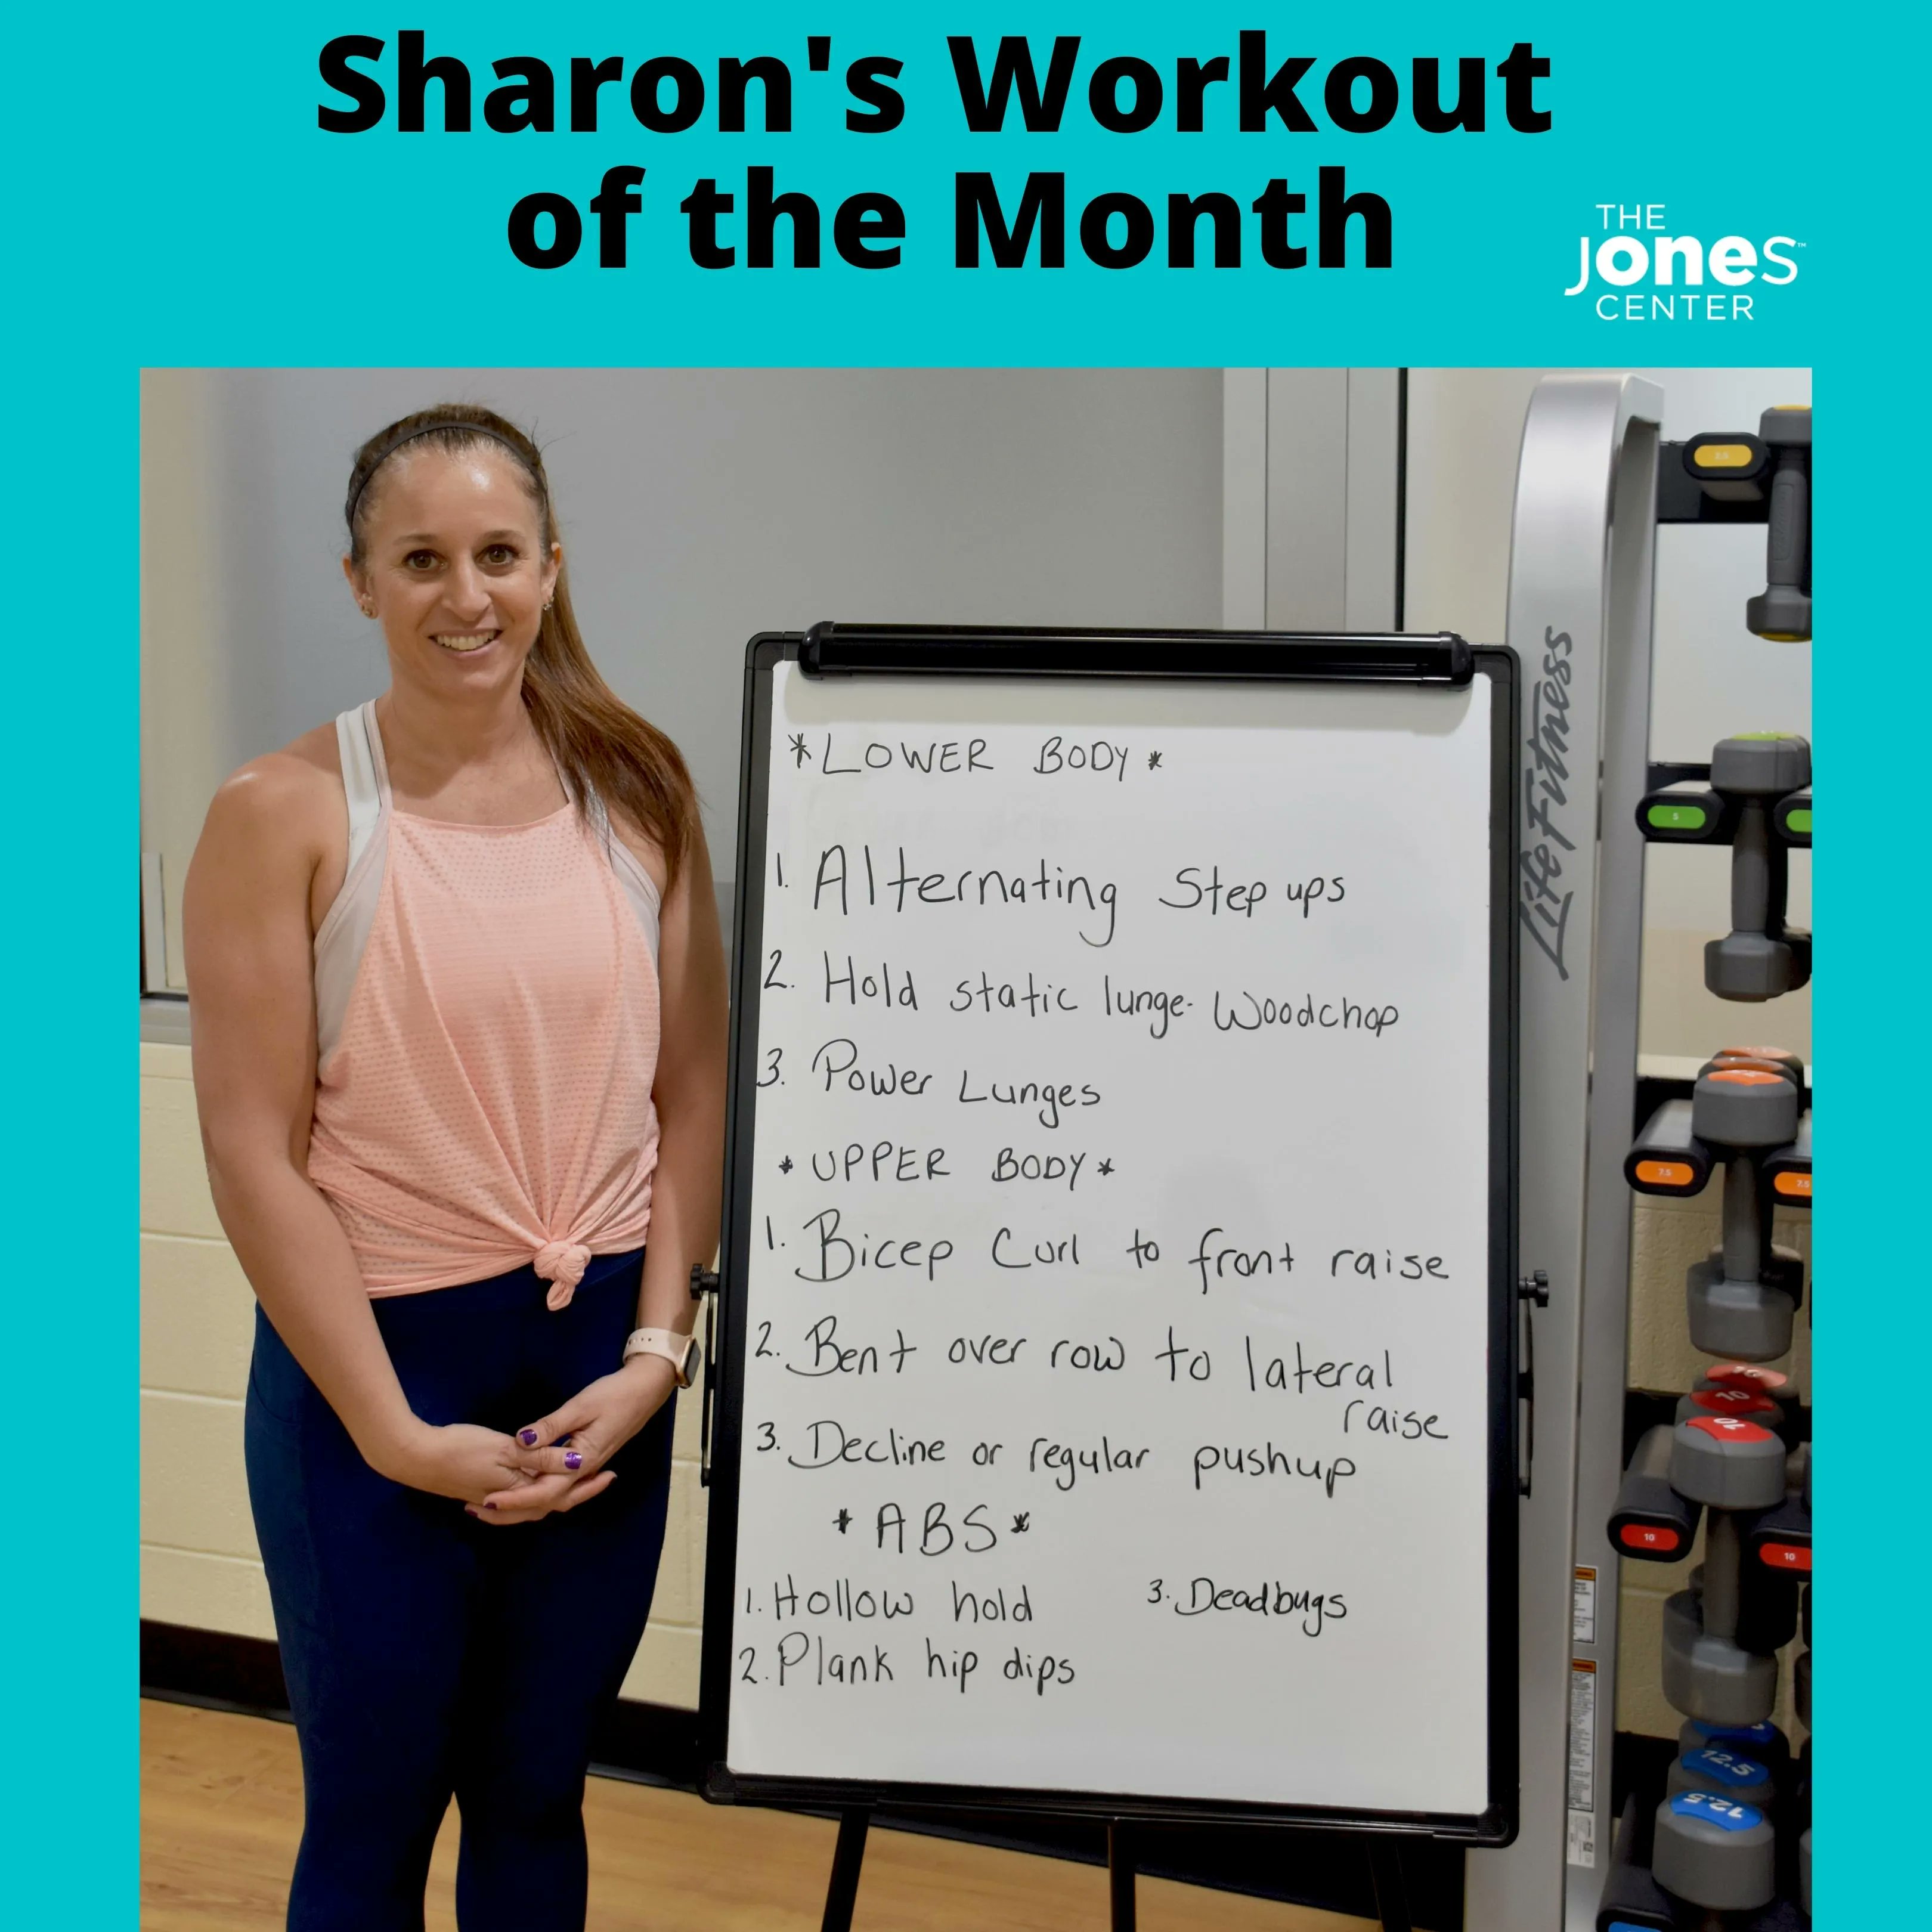 Sharon's Workout
of the Month
THE
Jones™
CENTER
*LOWER BODY*
1. Alternating Step ups
2. Hold static lunge- Woodchop
3. Power Lunges
*UPPER BODY*
1. Bicep Curl to front raise
2. Bent over row to lateral
raise
3. Decline or regular pushup
*ABS*
1. Hollow hold 3. Deadbugs
2. Plank hip dips
LifeFitness
2.5
5
7.5
7.5
10
10
10
10
10
12.5
12.5